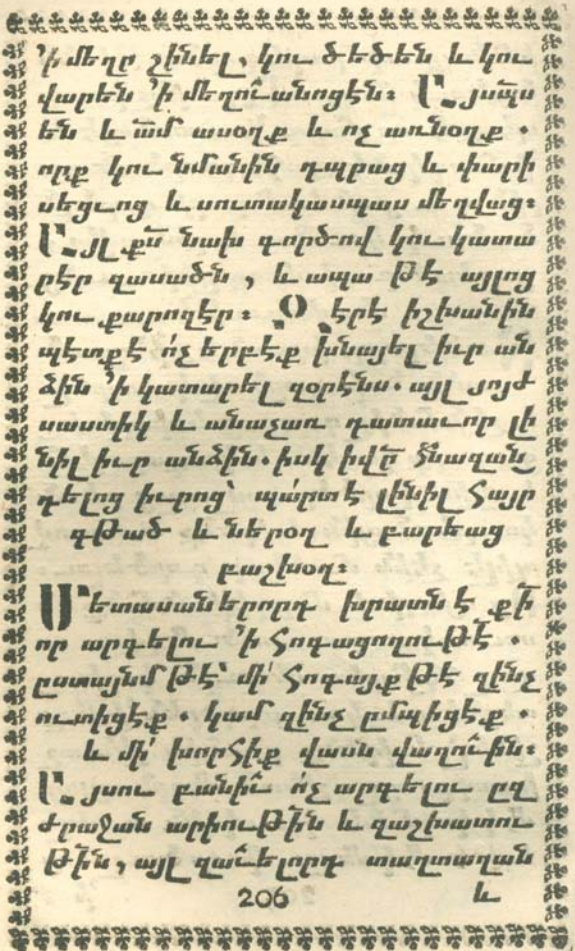 ՚ի մեղր շինել, կու ծեծեն և կու
վարեն ՚ի մեղուանոցէն։ Այսպս
են և ամ ասօղք և ոչ առնօղք .
որք կու նմանին դպրաց և փարի
սեցւոց և սուտակասպաս մեղվաց։
Այլ քս նախ գործով կու կատա
րէր զասածն , և ապա թէ այլոց
կու քարոզէր ։ Զէրէ իշխանին
պէտքէ ոչ երբէք խնայել իւր ան
ձին ՚ի կատարել զօրէնս. այլ յոյժ
սաստիկ և անաչառ դատաւոր լի
նիլ իւր անձին. իսկ իվր հնազան
դելոց իւրոց՝ պարտ է լինիլ հայր
գթած և ներօղ և բարեաց
բաշխօղ։
Մետասաներորդ խրատն է քի
որ արգելու ՚ի հոգացողութէ .
ըստայնմ թէ՝ մի հոգայք թէ զինչ
ուտիցէք . կամ զինչ ըմպիցէք .
և մի խորհիք վասն վաղուին։
Այսու բանիւ ոչ արգելու ըզ
ժրաջան արիութին և զաշխատու
թին, այլ զաւելորդ տաղտաղան
206 և